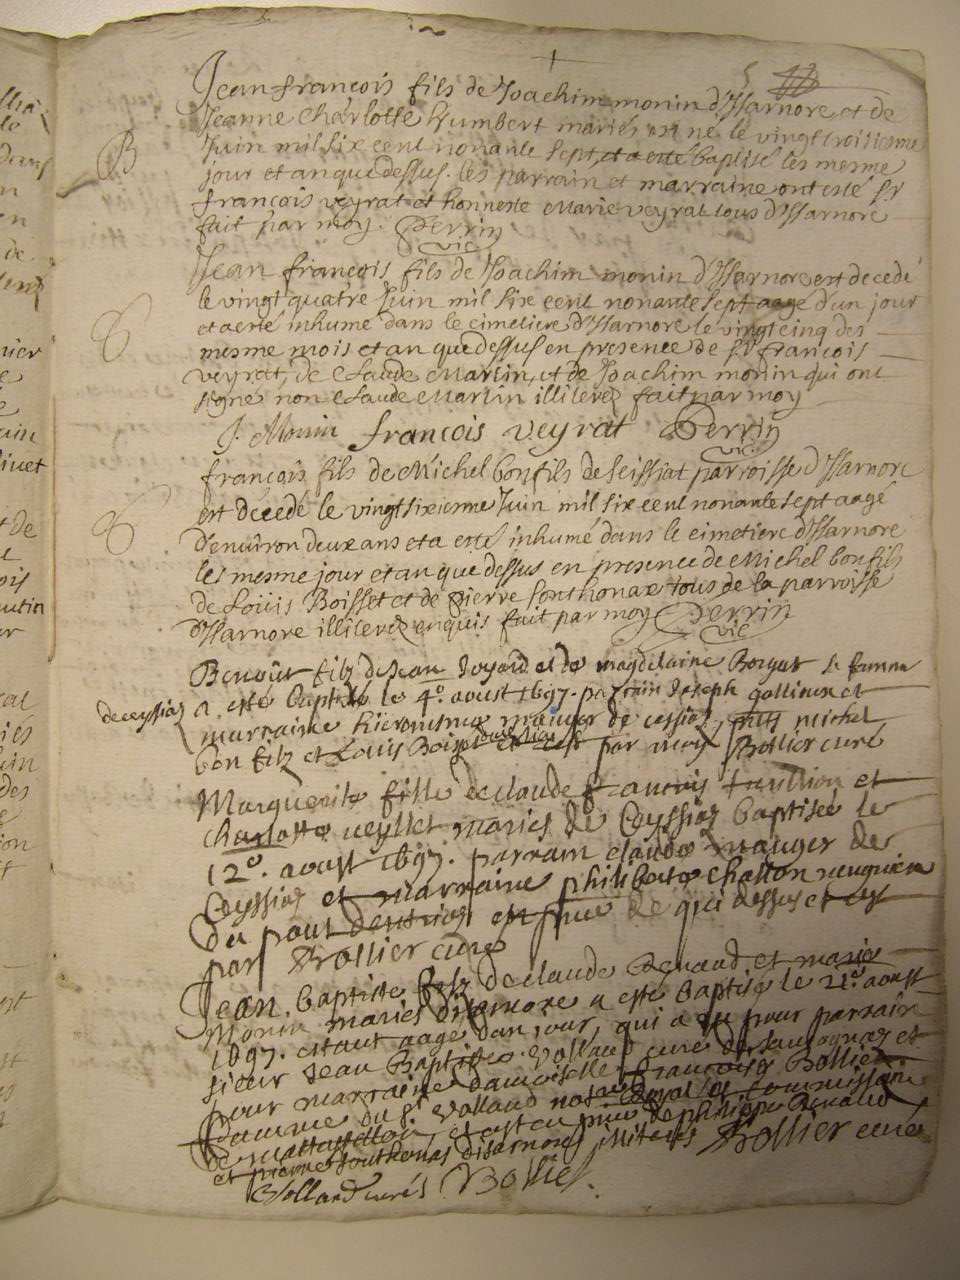 Jean francois fils de Joachim monin d'Isarnore et de
Jeanne Charlotte humbert mariés est né le vingt troisieme
Juin mil six cent nonante sept et a esté baptisé les mesme
jour et an que dessus. les parrain et marraine ont esté Sr
francois veyrat et honneste Marie veyrat tous d'Isarnore
fait par moy. Perrin
vic
B
Jean francois fils de Joachim monin d'Isarnore est decedé
le vingt quatre Juin mil six cent nonante sept aagé d'un jour
et a esté inhumé dans le cimetiere d'Isarnore le vingt cinq des
mesme mois et an que dessus en presence de Sr francois
veyrat, de Claude Martin, et de Joachim monin qui ont
signé non Claude Martin illiteré fait par moy
J. Monin francois veyrat Perrin
vic.
francois fils de Michel bonfils de Seissiat parroisse d'Isarnore
est décedé le vingt sixieme Juin mil six cent nonante sept aagé
d'environ deux ans et a esté inhumé dans le cimetiere d'Isarnore
les mesme jour et an que dessus en presence de Michel bonfils
de Loüis Boisset et de pierre fonthonax tous de la parroisse
d'Isarnore illiterez enquis fait par moy Perrin
vic
Benoit filz de Jean et de magdelaine sa femme
de ceyssia
a esté baptisé le 4e. aoust 1697. parrain Joseph et
marraine de ceissia, michel
bon filz et Louis par moy Bollier curé
Marguerite fille de claude francois et
charlotte mariés de Ceyssia baptisée le
12e. aoust 1697. parrain claude mauger de
Ceyssia et marraine philiberte
du pont et
par Bollier curé
Jean baptiste filz de claude Renaud et marie
Monin mariés d'isarnore a esté baptisé le 21e. aoust
1697. estant aagé d'un jour, qui a eu pour parrain
sieur Jean Baptiste Volland curé de et
pour marraine damoiselle francoise Bollier
femme du Sr Volland
de et de philippe Renaud
et pierre fonthonas d'isarnore illiterés Bollier curé
Volland curé Bollier.